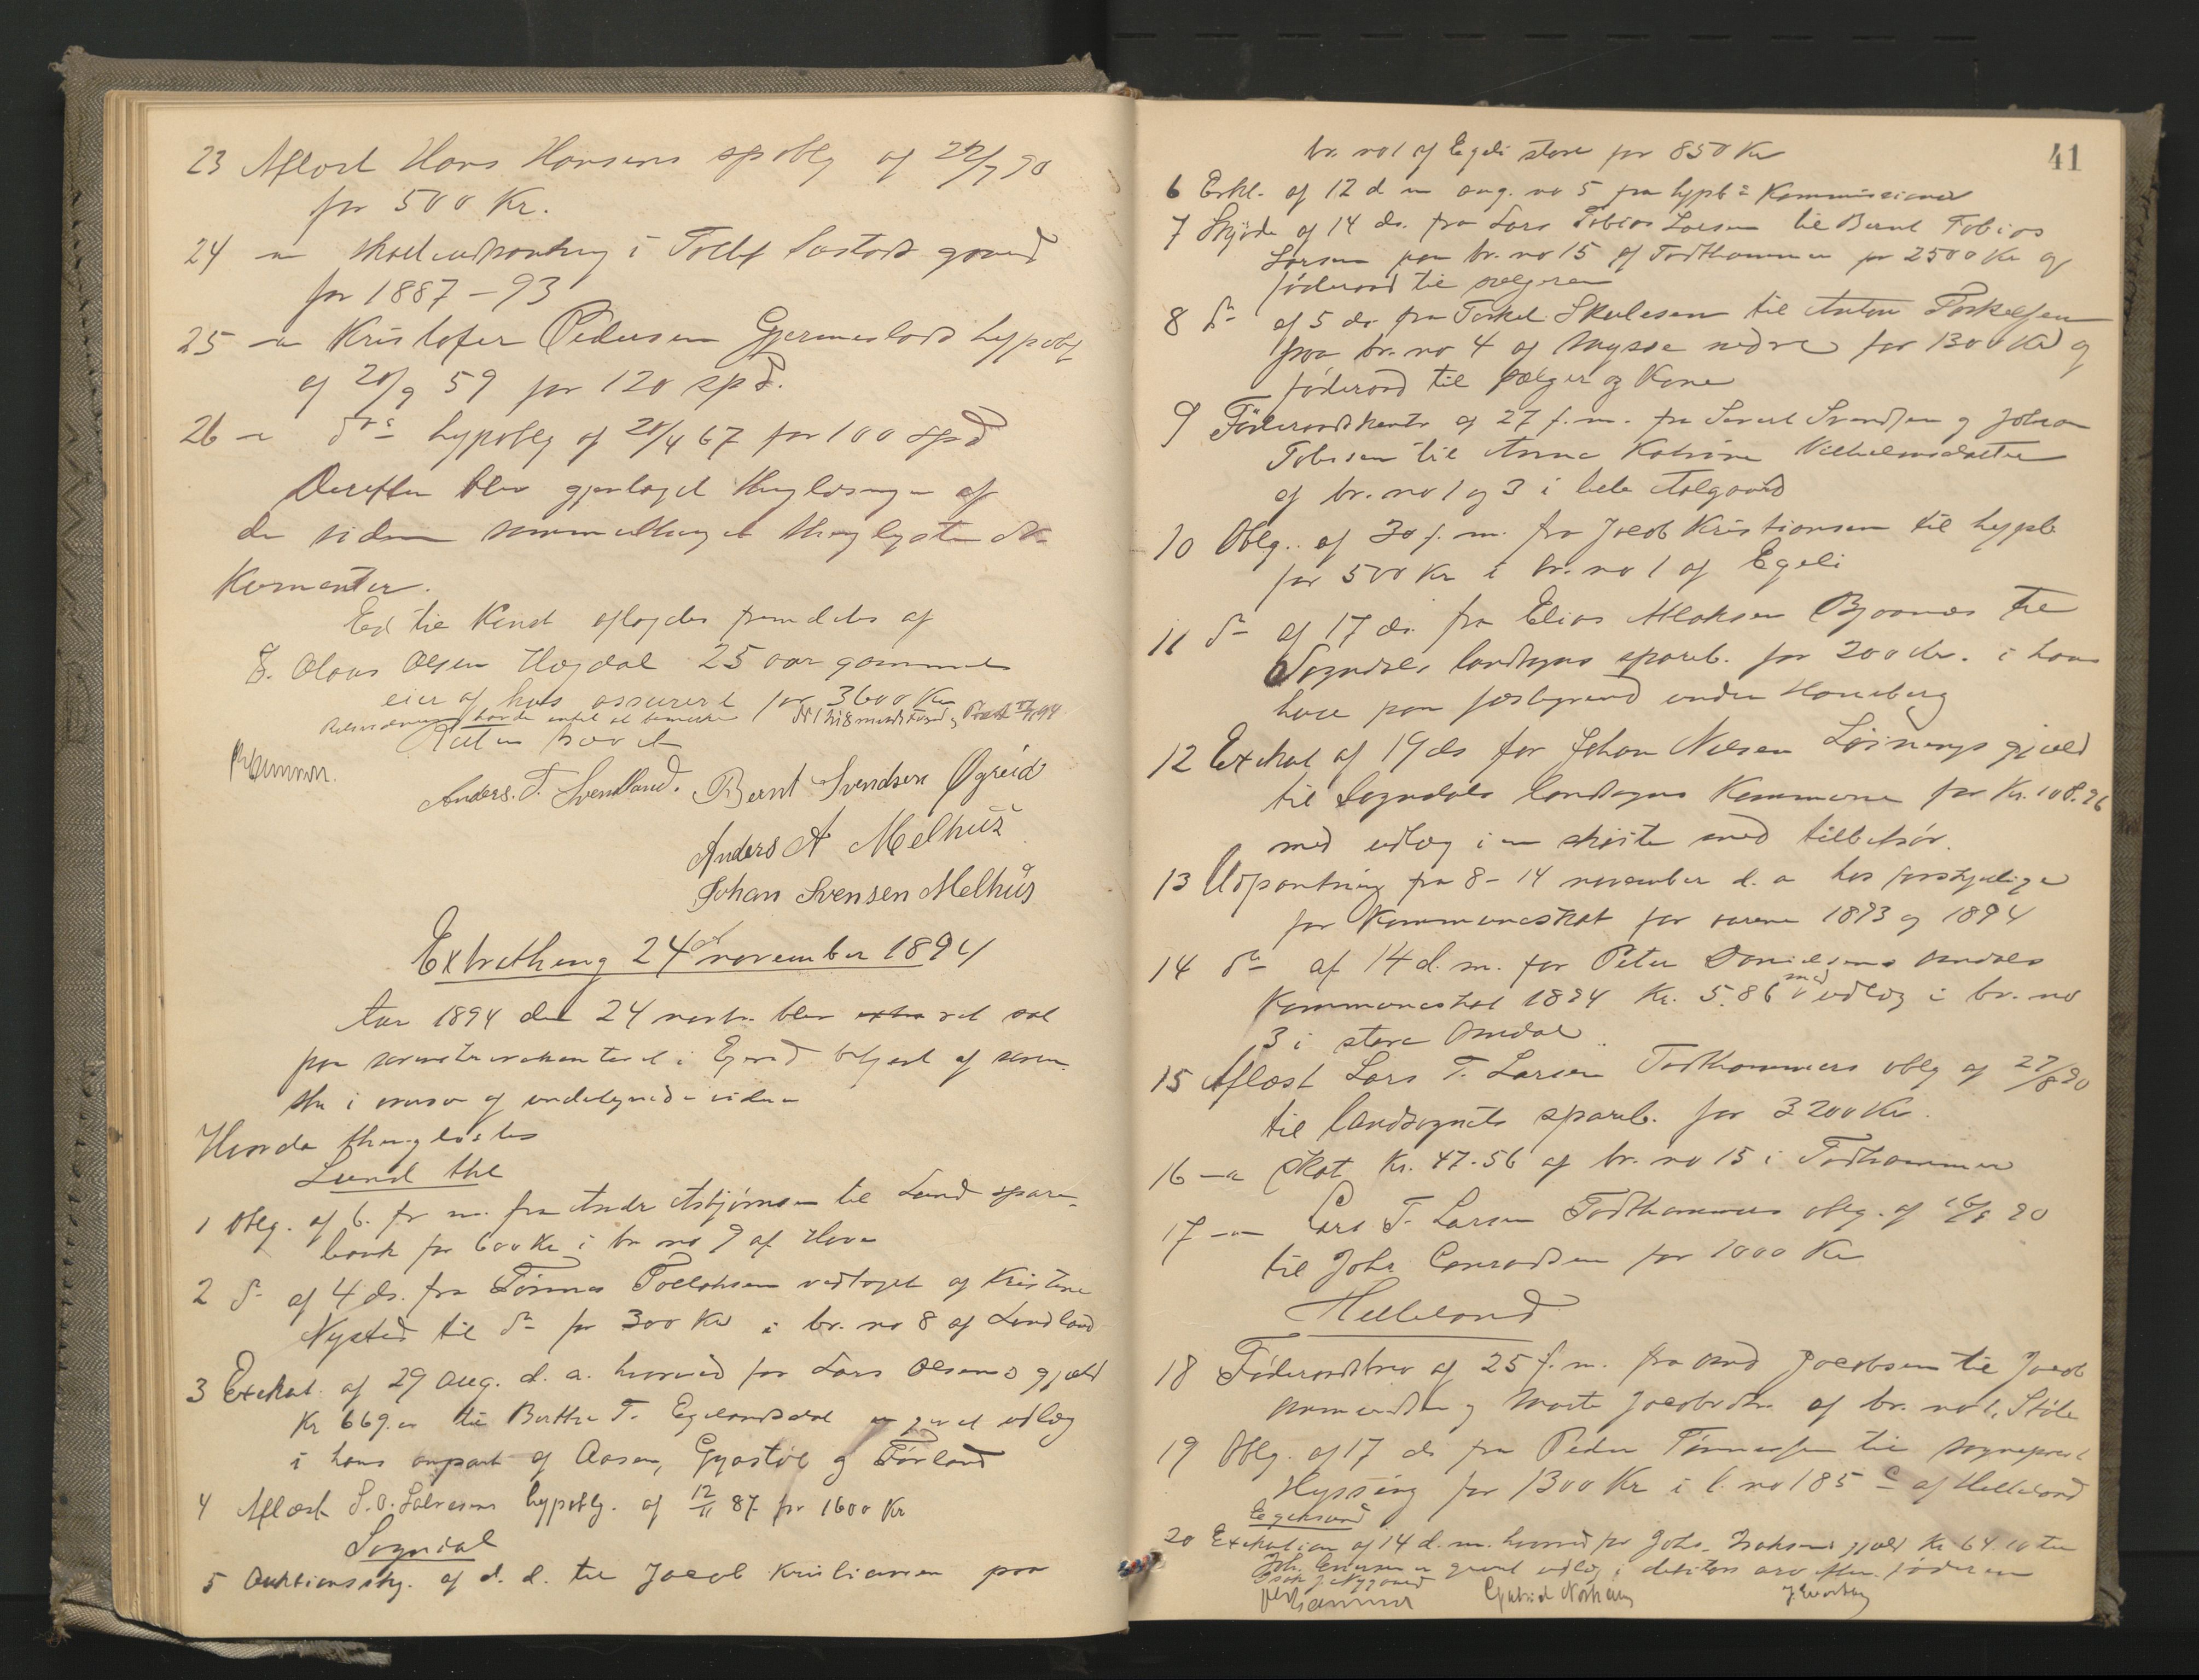 23 Aflæst Hans Hansens spoblg af 22/7 90
for 500 Kr.
24 -"- Skatteudpantning i Tollef gaard
for 1887-93
25 -"- Kristofer Pedersen Gjermestads hypobl
af 20/9 59 for 120 spd.
26 -"- ds hypoblg af 20/4 67 for 100 spd
Derefter blev gjentaget thinglæsningen af
de siden sommerthinget thinglyste do-
kumenter.
Ed til Kand aflagdes fremdeles af
8. Olaus Olsen Hægdal 25 aar gammel
eier af hus assureret for 3600 Kr
Retten hævet
Anders. T. Svendland. Bernt Svendsen Øgreid
Anders A Melhus
Johan Svensen Melhus
Extrathing 24de november 1894
Aar 1894 den 24 novbr. blev extra ret sat
paa sorenskriverkontoret i Egersd betjent af soren-
skr i overvær af undertegnede vidner
Hvorda thinglæstes
Lund thl
1 Oblg. af 6. f. m. fra Andr Asbjørnsen til Lund spare-
bank for 600 Kr i br no 9 af Hove
2 do af 4 ds. fra Tønnes Tollaksen vedtaget af Kristine
Nysted til do for 300 Kr i br. no 8 af Lindland
3 Exekut. af 29 aug. d. a. hvorved for Lars Olsens gjæld
Kr 669. til Berthe T. Egelandsdal er gjort udlæg
i hans anpart af Aasen, Gyastøl og Førland
4 Aflæst S. O. Salvesens hypoblg. af 12/11 87 for 1600 Kr
Sogndal
5 Auktionsskj. af d. d. til Jacob Kristiansen paa
41
br. no 1 af Egeli store for 850 Kr
6 Erkl. af 12 d m ang. no 5 fra hypb.s Kommissionær
7 Skjøde af 14 ds. fra Lars Tobias Larsen til Bernt Tobias
Larsen paa br. no 15 af Todthammer for 2500 Kr og
føderaad til sælgeren
8 do af 5 ds. fra Torkel Skulesen til Anton Torkelsen
paa br. no 4 af Mysse nedre for 1300 Kr og
føderaad til sælger og Kone
9 Føderaadskontr af 27 f. m. fra Sivert Svendsen og Johan
Tobiasen til Anna Katrine Vilhelmsdatter
af br. no 1 og 3 i lille Aalgaard
10 Oblg. af 30 f. m. fra Jacob Kristiansen til hypb
for 500 Kr i br. no 1 af Egeli
11 do af 17 ds. fra Elias Aslaksen Bjaanes til
Sogndals landsogns spareb. for 200 Kr. i hans
huse paa fæstegrund under Haneberg
12 Exekut af 19 ds for Johan Nilsen Løsnings gjæld
til Sogndals landsogns Kommune for Kr. 108.26
med udlæg i en skøite med tilbehør.
13 Udpantning fra 8-14 november d. a hos forskjellige
for Kommuneskat for aarene 1893 og 1894
14 do af 14 d. m. for Peter Danielsens Omdals
Kommuneskat 1894 Kr. 5.86 med udlæg i br. no
3 i store Omdal.
15 Aflæst Lars T. Larsen Todthammers oblg af 27/8 90
til landsognets spareb. for 3200 Kr.
16 -"- Skat Kr. 47.56 af br. no 15 i Todhammer
17 -"- Lars T. Larsen Todthammers oblg. af 16/8 90
til Johs Conradsen for 1000 Kr
Helleland
18 Føderaadsbrev af 25 f. m. fra Omd Jacobsen til Jacob
Ommundsen og Marte Jacobsdtr. af br. no 1, Støle
19 Oblg. af 17 ds fra Peder Tønnessen til sogneprest
Hyssing for 1300 Kr i l. no 185 c af Helleland
Egersund
20 Exekution af 14 d. m. hvorved for Johs. Isaksens gjæld Kr 64.10 til
er gjort udlæg i debitors arv efter faderen